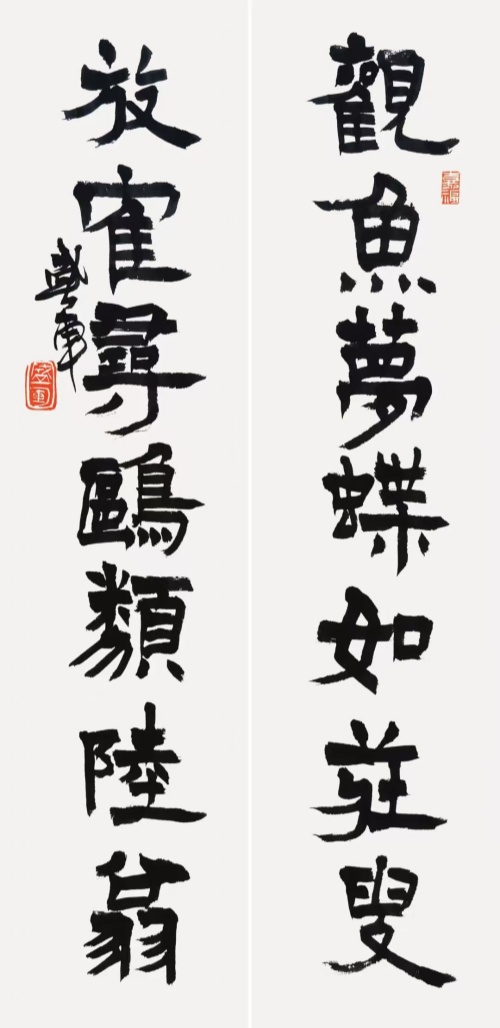 觀魚夢蝶如莊叟
放隺尋鷗類陸翁
盛軍